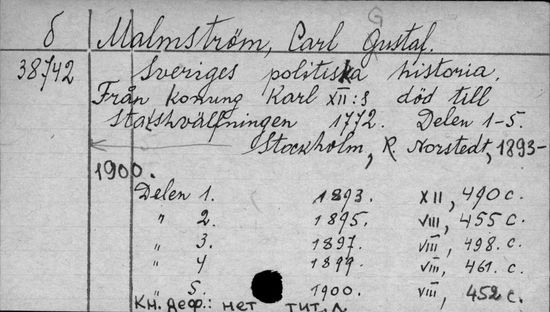 б Malmström, Carl Gustaf.
38742 Sveriges politiska historia.
Från konung Karl XII:s död till
statshvälfningen 1772. Delen 1-5.
Stockholm, R. Norstedt, 1893-
1900.
Delen 1. 1893. XII, 490 c.
" 2. 1895. VIII, 455 c.
" 3. 1897. VIII, 498. c.
" 4 1899. VIII, 461. c.
" 5. 1900. VIII, 452 c.
Кн. деф.: нет тит. л.